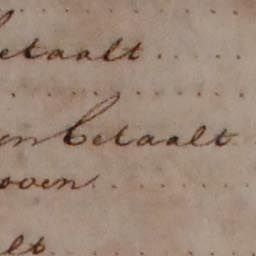 etaalt......
..........
en betaalt
oven........
lt..........